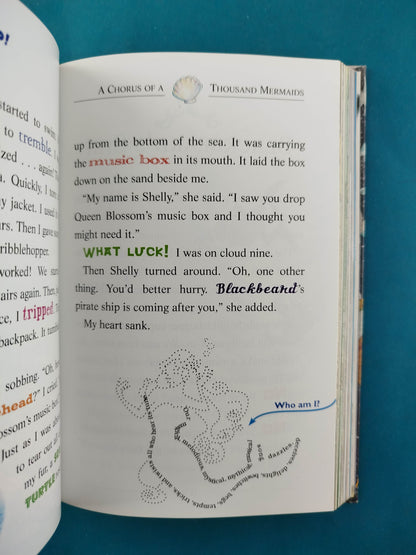 started to swim
to tremble. I
zed . . . again!
a. Quickly, I
y jacket. I used
rs. Then I gave
ribblehopper.
worked! We
airs again. Then,
ce, I tripped.
backpack. It
sobbing. "Oh,
-head?" I cried.
ossom's music
Just as I was
to tear out all
my fur, a
TURTLE
A CHORUS OF A THOUSAND MERMAIDS
up from the bottom of the sea. It was carrying
the music box in its mouth. It laid the box
down on the sand beside me.
"My name is Shelly," she said. "I saw you drop
Queen Blossom's music box and I thought you
might need it."
WHAT LUCK! I was on cloud nine.
Then Shelly turned around. "Oh, one other
thing. You'd better hurry. Blackbeard's
pirate ship is coming after you," she added.
My heart sank.
Who am I?
Our
melodious, magical, mythical
work dazzles,
deceives, delights, bewitches, begs, tempts, tricks, and twists all who hear us